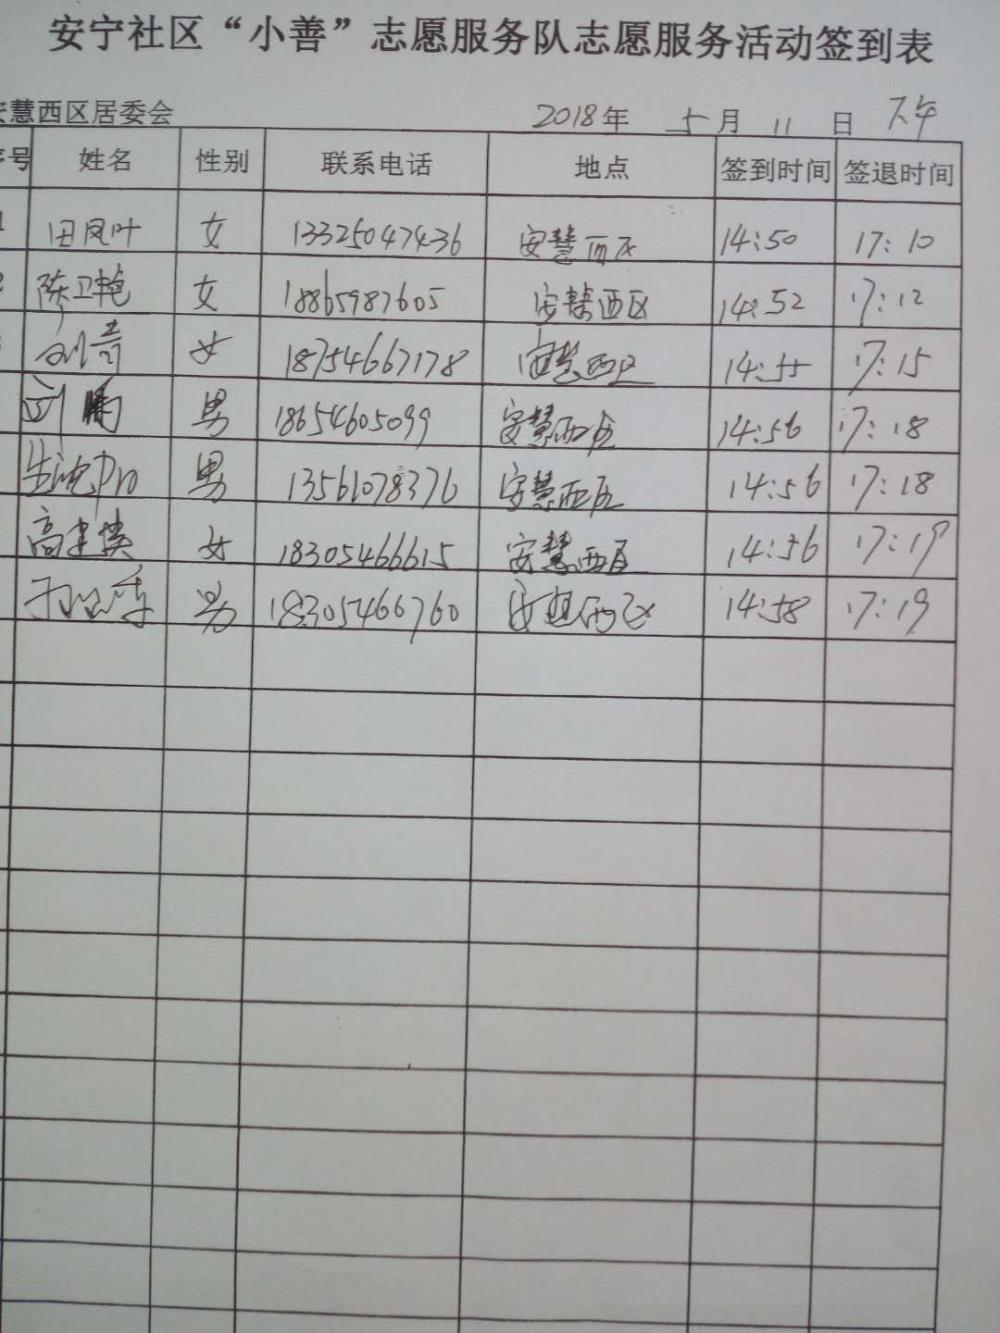 安宁社区“小善”志愿服务队志愿服务活动签到表
安慧西区居委会 2018年 5月 11日 下午
序号 姓名 性别 联系电话 地点 签到时间 签退时间
1 田凤叶 女 13325047436 安慧西区 14:50 17:10
2 陈卫艳 女 18865987605 安慧西区 14:52 17:12
3 女 18754667178 安慧西区 14:55 17:15
刘 男 18654605099 安慧西区 14:56 17:18
男 13561078376 安慧西区 14:56 17:18
高建 女 18305466615 安慧西区 14:56 17:19
男 18305466760 安慧西区 14:58 17:19